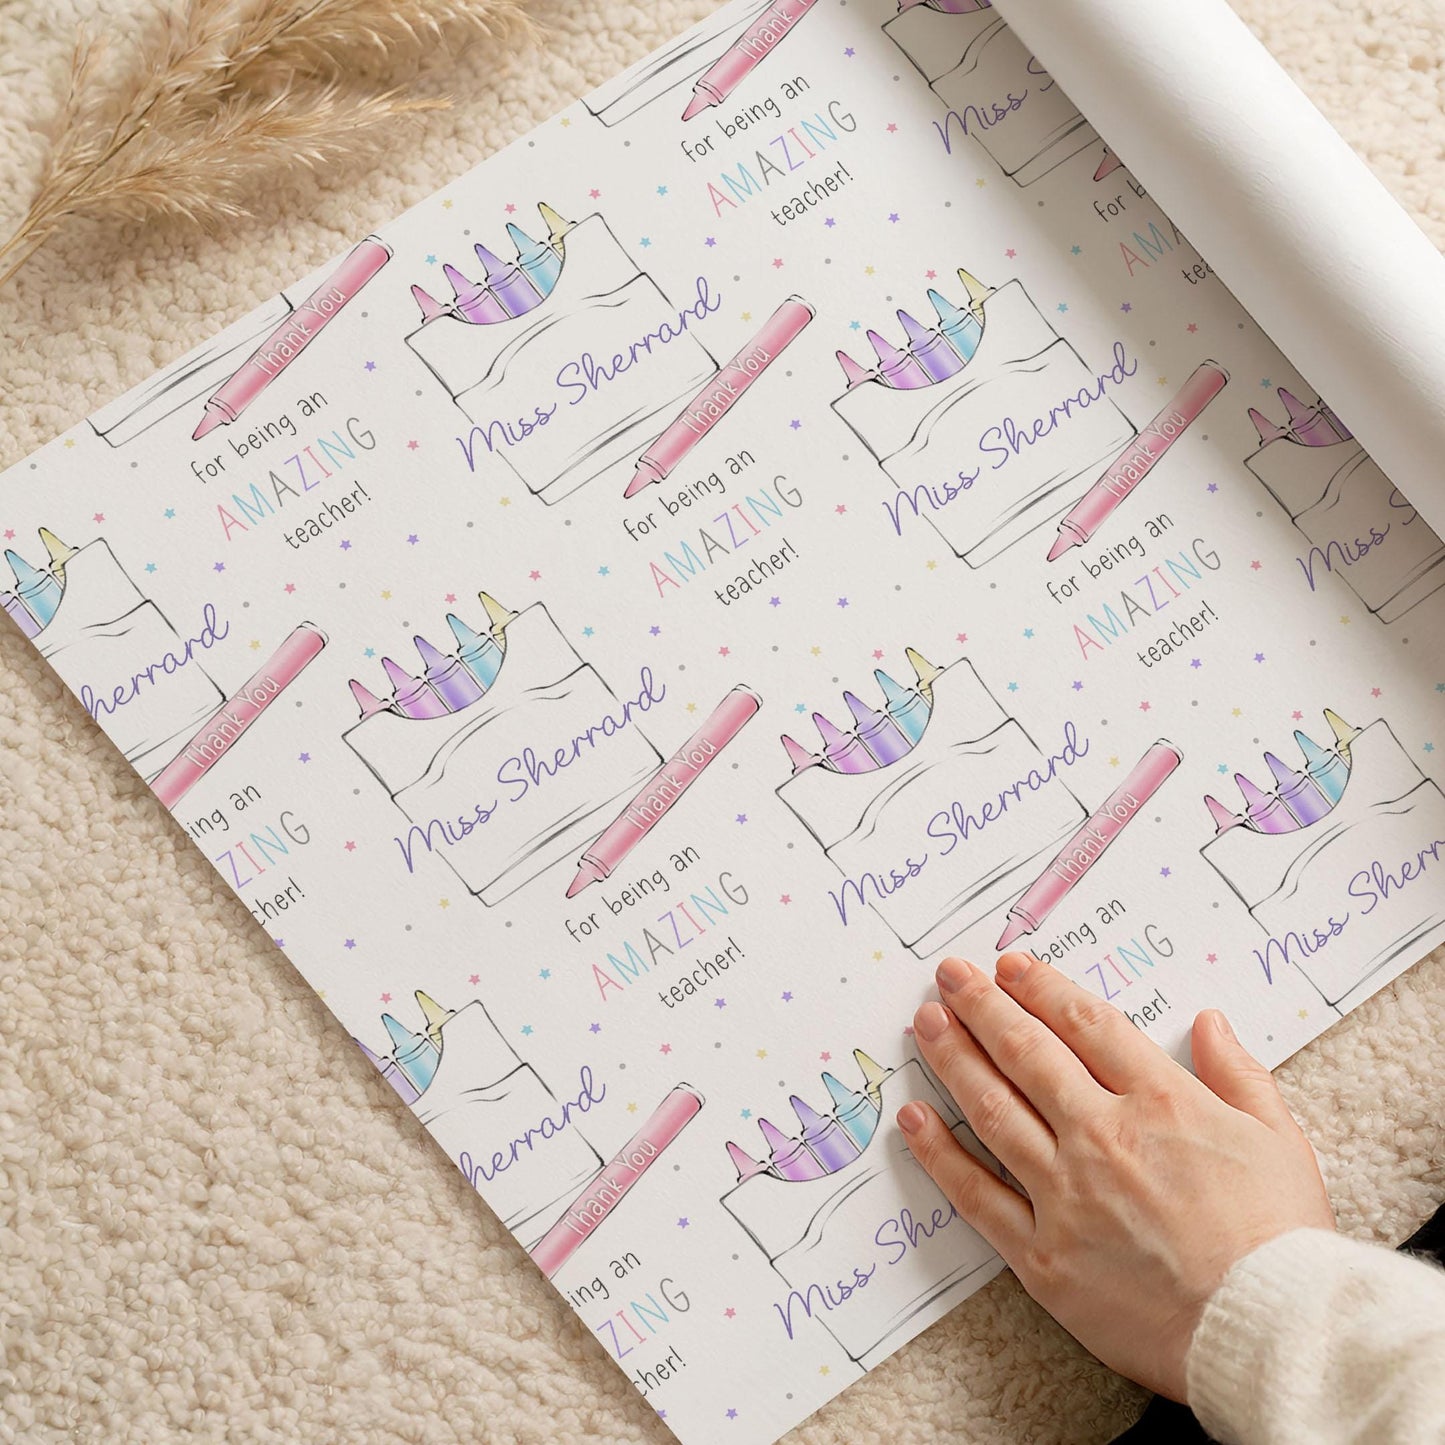 Thank
for being an
AMAZING
teacher!
Miss
Thank You
for being an
AMAZING
teacher!
Miss Sherrard
Thank You
for being an
AMAZING
teacher!
Miss Sherrard
Thank You
for being an
AMAZING
teacher!
Miss
Sherrard
Thank You
an
teacher!
Miss Sherrard
Thank You
for being an
AMAZING
teacher!
Miss Sherrard
Thank You
being an
Miss
Sherrard
Thank You
an
Miss